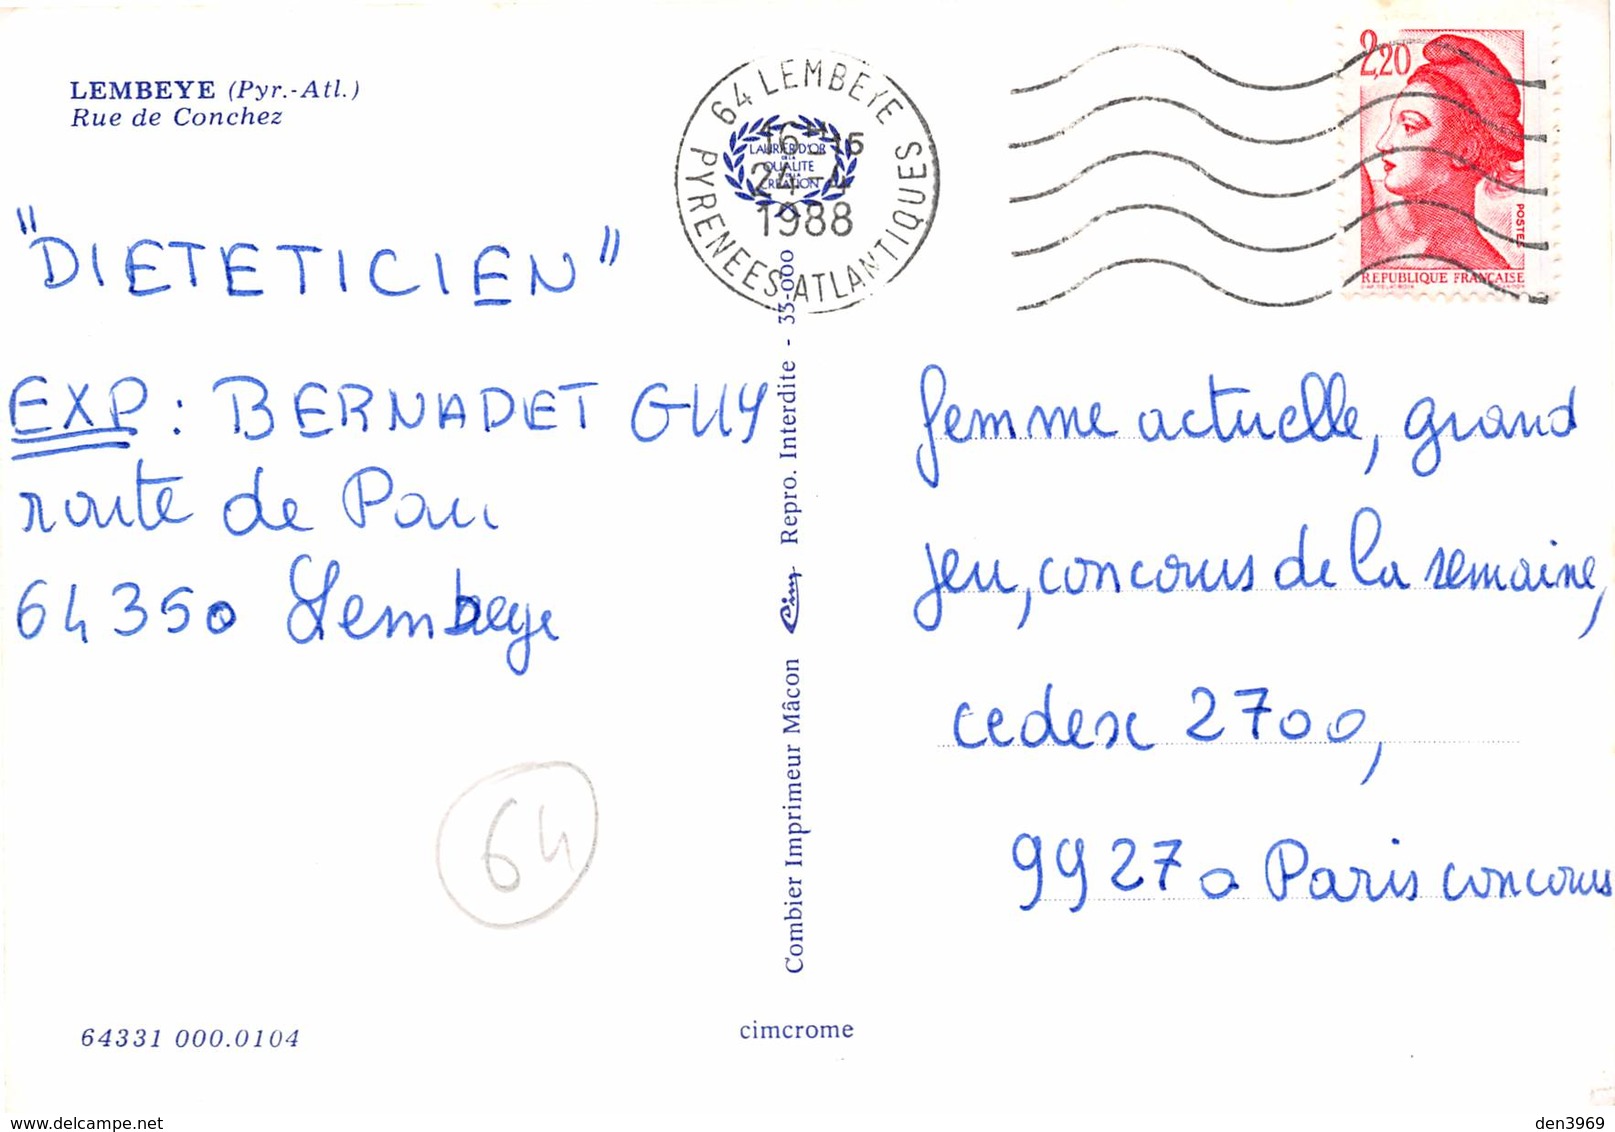 LEMBEYE (Pyr.-Atl.)
Rue de Conchez
64 LEMBEYE
16 H 15
24 - 4
1988
PYRENEES-ATLANTIQUES
LAURIER D'OR
DE LA
QUALITE
DE LA
CREATION
2,20
POSTES
REPUBLIQUE FRANÇAISE
"DIETETICIEN"
EXP : BERNADET GUY
route de Pau
64350 Lembeye
femme actuelle, grand
jeu, concours de la semaine,
cedex 2700,
99270 Paris concours
64
Combier Imprimeur Mâcon Cim Repro. Interdite - 33-000
64331 000.0104
cimcrome
www.delcampe.net
den3969